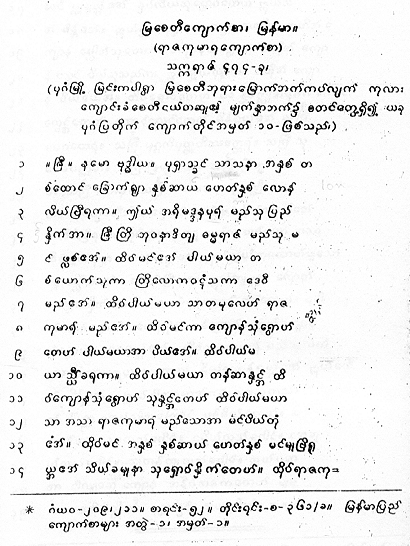 မြစေတီကျောက်စာ၊ မြန်မာ။
(ရာဇကုမာရကျောက်စာ)
သက္ကရာဇ် ၄၇၄-ခု၊
(ပုဂံမြို့ မြင်းကပါရွာ မြစေတီဘုရားမြောက်ဘက်ကပ်လျက် ကုလား
ကျောင်းခံစေတီငယ်တဆူ၏ မျက်နှာဘက်၌ စတင်တွေ့ရှိ၍ ယခု
ပုဂံပြတိုက် ကျောက်တိုင်အမှတ် ၁၀-ဖြစ်သည်၊)
၁ ။သြီ။ နမော ဗုဒ္ဓါယ။ ပုရှာသ္ခင် သာသနာ အနှစ် တ
၂ စ်ထောင် ခြောက်ရျာ နှစ်ဆာယ် ဟေတ်နှစ် လောန်
၃ လိယ်ပြီရကာ။ ဤယ် အရိမဒ္ဒနပုရ် မည်သု ပြည်
၄ နှိက်အာ။ သြီ တြိ ဘုဝနာဒိတျ ဓမ္မရာဇ် မည်သု မ
၅ င် ဖ္လစ်ဧအ်။ ထိုဝ်မင်ဧအ် ပါယ်မယာ တ
၆ စ်ယောက်သုကာ တြိလောကဝဋံသကာ ဒေဝီ
၇ မည်ဧအ်။ ထိုဝ်ပါယ်မယာ သာတမူလေဟ် ရာဇ
၈ ကုမာရ် မည်ဧအ်။ ထိုဝ်မင်ကာ ကျောန်သုံရှောဟ်
၉ တေဟ် ပါယ်မယာအာ ပိယ်ဧအ်။ ထိုဝ်ပါယ်မ
၁၀ ယာ သ္ဃီခရကာ။ ထိုဝ်ပါယ်မယာ တန်ဆာနှင့် ထိ
၁၁ ုဝ်ကျောန်သုံရှောဟ် သုနှင့်တေဟ် ထိုဝ်ပါယ်မယာ
၁၂ သာ အသာ ရာဇကုမာရ် မည်သောအာ မင်ပိယ်တုံ
၁၃ ဧအ်။ ထိုဝ်မင် အနှစ် နှစ်ဆာယ် ဟေတ်နှစ် မင်မူပြီရှ
၁၄ ယ္တဧအ် သိယ်ခမူနာ သုရှောဝ်နှိက်တေဟ်။ ထိုဝ်ရာဇကု=
* ဂံယ၀-၂၀၉၊၂၁၁။ စာရင်း-၅၂။ တိုင်းရင်း-စ-၃၆၁/ခ။ မြန်မာပြည်
ကျောက်စာများ အတွဲ-၁၊ အမှတ်-၁။